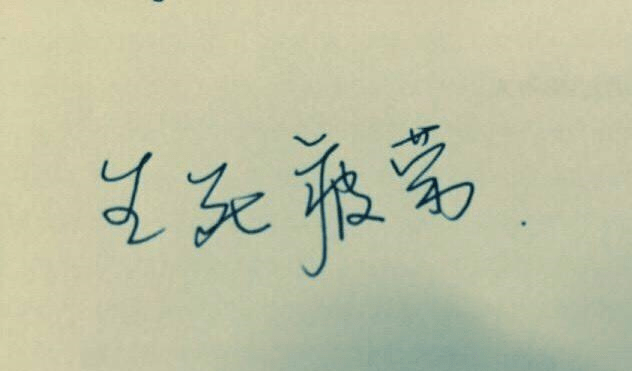 生死疲劳.